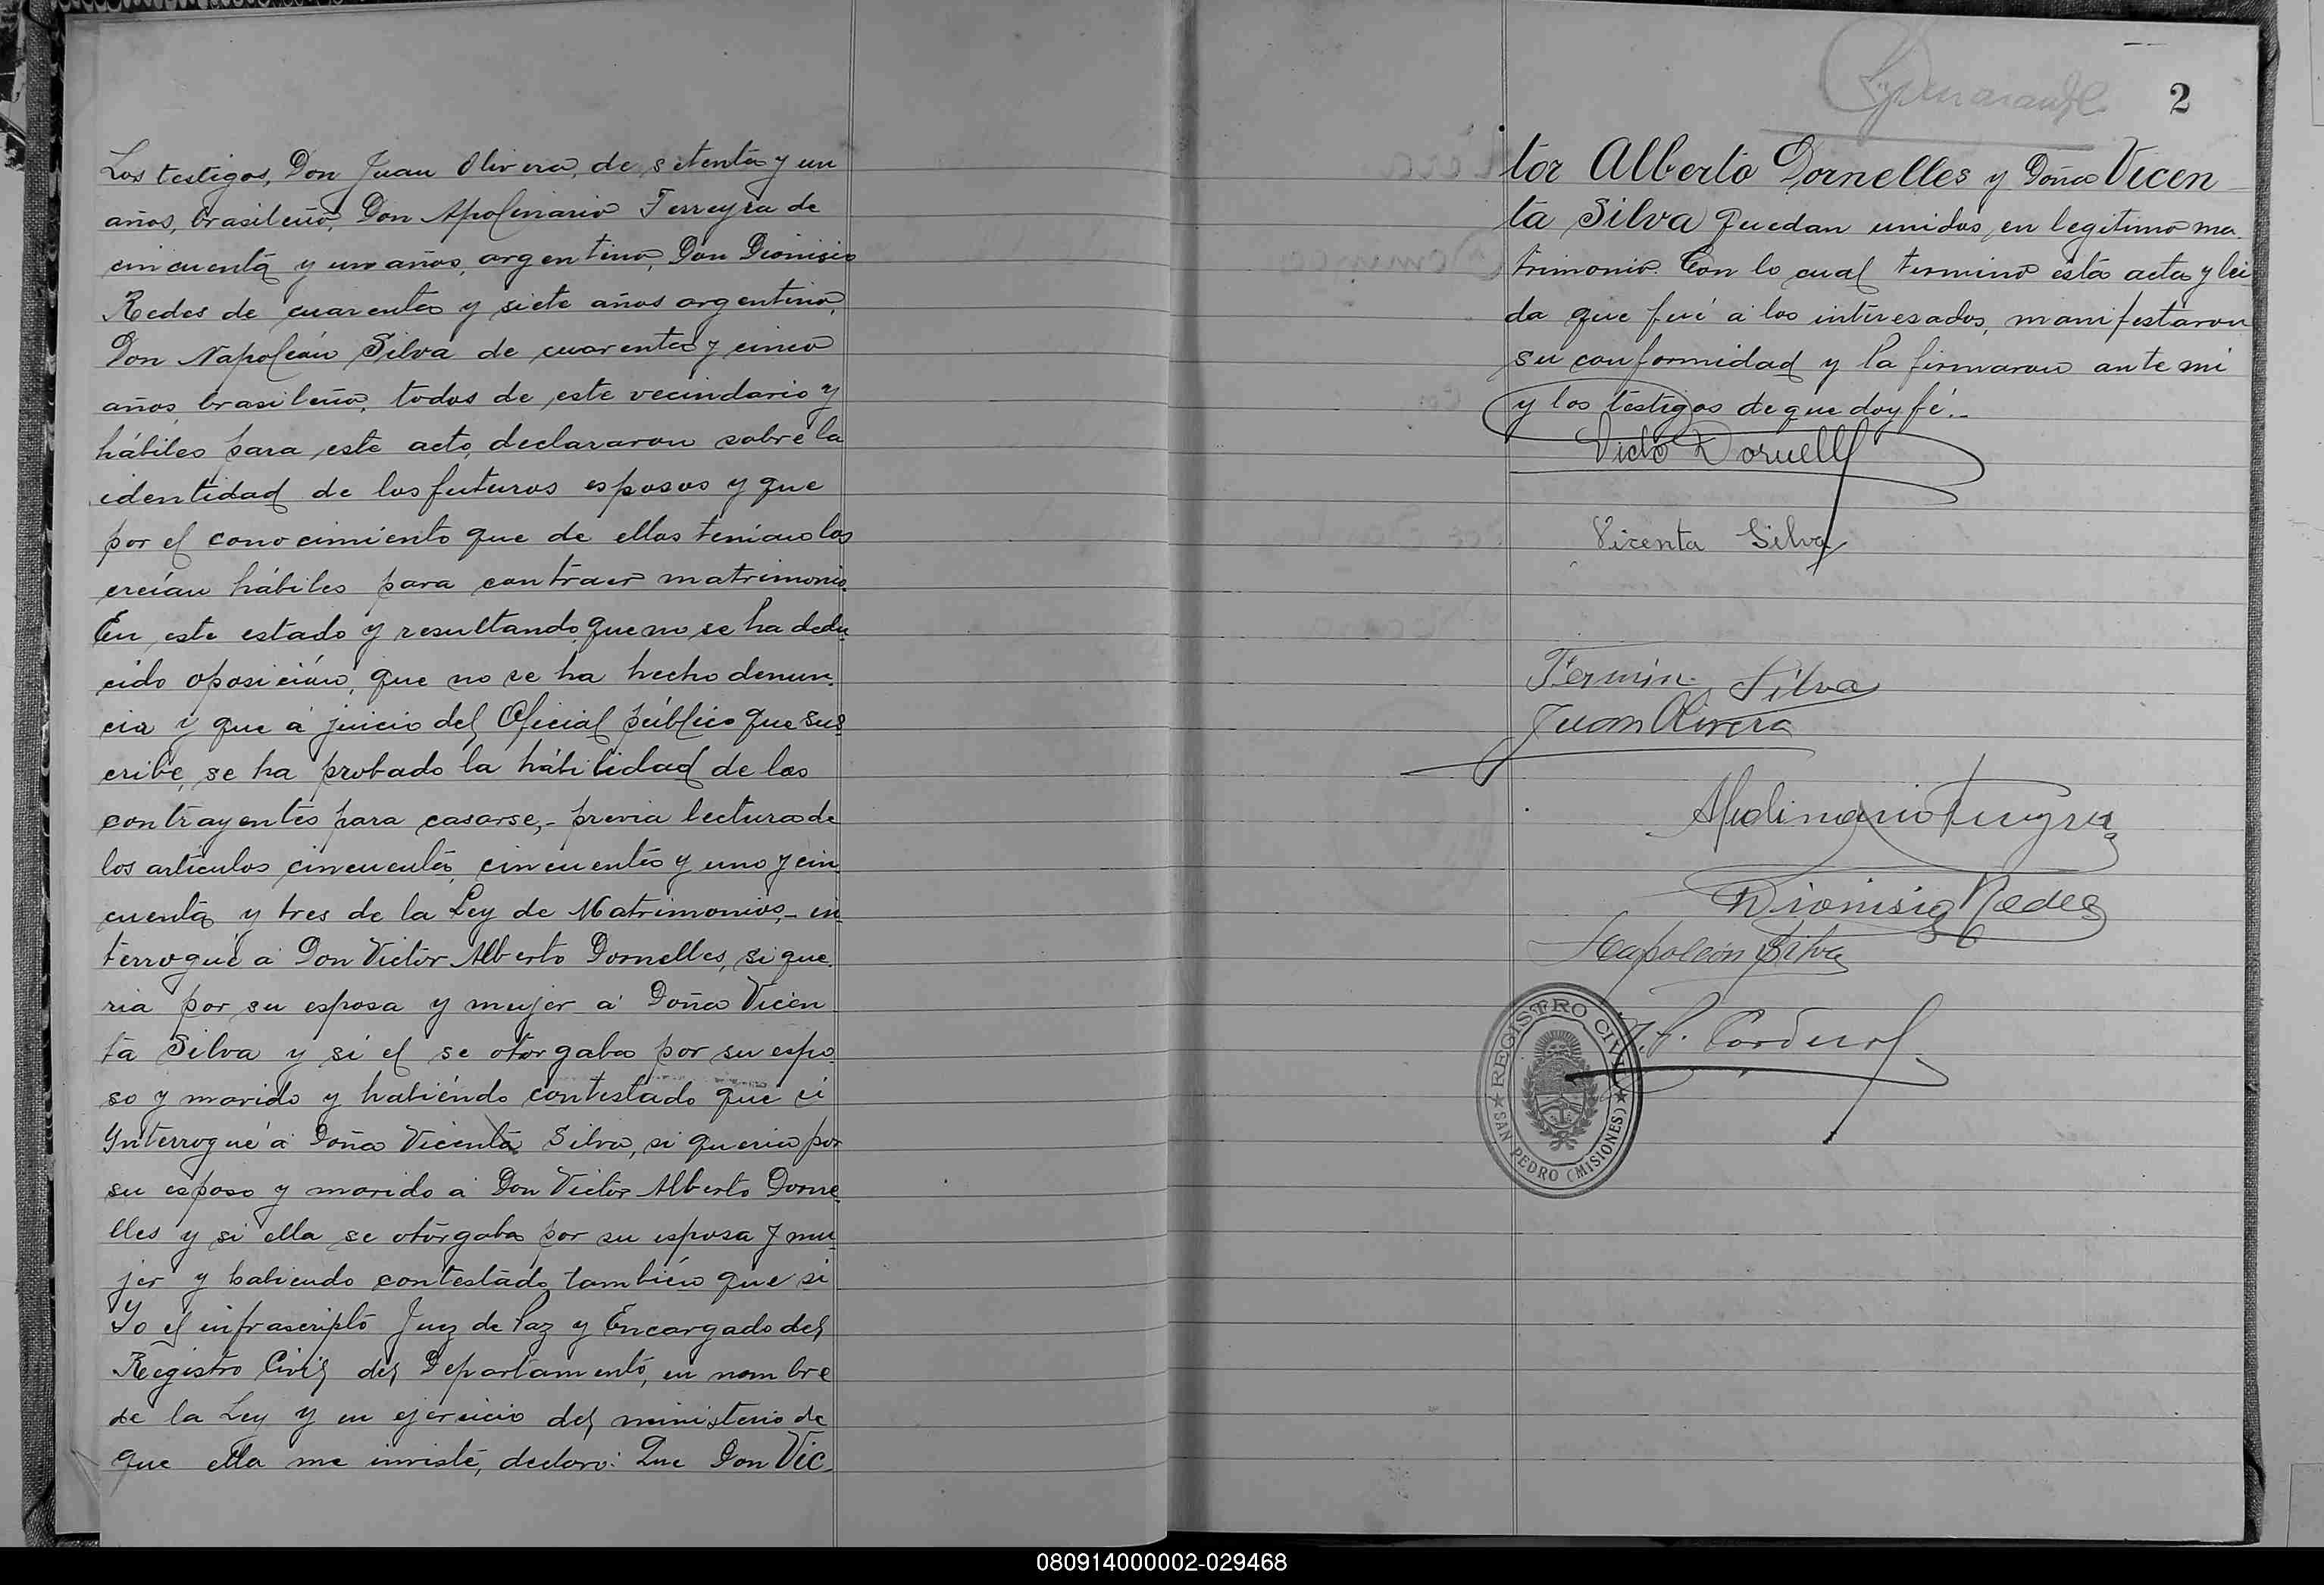 Los testigos, Don Juan Olivera, de setenta y un
años, brasileño, Don Apolinario Ferreyra de
cincuenta y un años, argentino, Don Dionisio
Redes de cuarenta y siete años argentino,
Don Napoleón Silva de cuarenta y cinco
años brasileño, todos de este vecindario y
hábiles para este acto, declararon sobre la
identidad de los futuros esposos y que
por el conocimiento que de ellos tenían los
creían hábiles para contraer matrimonio.
En este estado y resultando que no se ha dedu
cido oposición, que no se ha hecho denun-
cia y que á juicio del Oficial público que sus
cribe, se ha probado la habilidad de los
contrayentes para casarse,- previa lectura de
los artículos cincuenta, cincuenta y uno y cin
cuenta y tres de la Ley de Matrimonios,- in
terrogué á Don Victor Alberto Dornelles, si que-
ria por su esposa y mujer á Doña Vicen
ta Silva y si el se otorgaba por su espo
so y marido y habiéndo contestado que si
Ynterrogué á Doña Vicenta Silva, si queria por
su esposo y marido á Don Victor Alberto Dorne
lles y si ella se otorgaba por su esposa y mu
jer y habiendo contestado también que si
Yo el infrascripto Juez de Paz y Encargado del
Registro Civil del Departamento, en nombre
de la Ley y en ejercicio del ministerio de
que ella me inviste, declaro: Que Don Vic
2
tor Alberto Dornelles y Doña Vicen
ta Silva quedan unidos en legitimo ma
trimonio. Con lo cual termino está acta y lei
da que fué á los interesados, manifestaron
su conformidad y la firmaron ante mi
y los testigos de que doy fé.-
Victo Dornell
Vicenta Silva
Fermin Silva
Juan Olivera
Apolinario Ferreyra
Dionisio Redes
Napoleón Silva
REGISTRO CIVIL
SAN PEDRO (MISIONES)
080914000002-029468